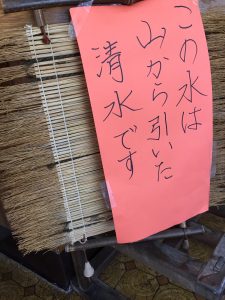 この水は
山から引いた
清水です